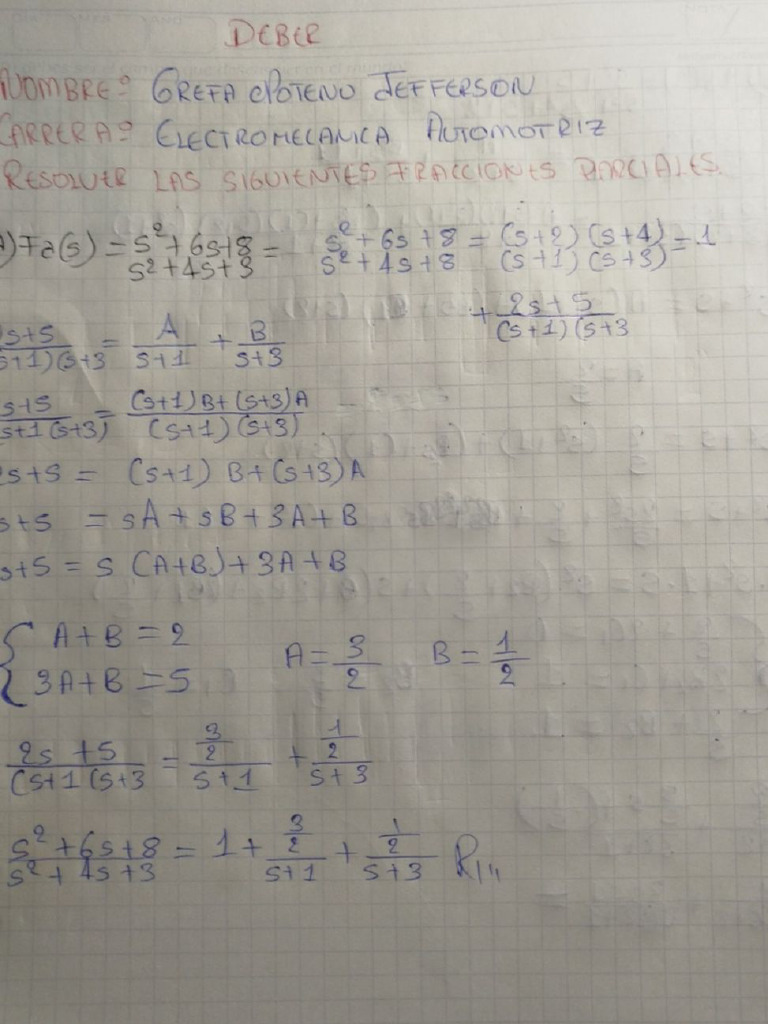 DEBER
NOMBRE: GREFA JEFFERSON
CARRERA: ELECTROMECANICA AUTOMOTRIZ
RESOLVER LAS SIGUIENTES FRACCIONES PARCIALES.
)Fa(s) = s²+6s+8 / s²+4s+3 = s²+6s+8 / s²+4s+8 = (s+2)(s+4) / (s+1)(s+3) = 1
+ 2s+5 / (s+1)(s+3
s+5 / s+1)(s+3 = A / s+1 + B / s+3
s+5 / s+1(s+3) = (s+1)B+(s+3)A / (s+1)(s+3)
s+5 = (s+1) B+(s+3)A
s+5 = sA+sB+3A+B
s+5 = s (A+B)+3A+B
{ A+B = 2
3A+B = 5 A = 3/2 B = 1/2
2s+5 / (s+1(s+3 = 3/2 / s+1 + 1/2 / s+3
s²+6s+8 / s²+4s+3 = 1 + 3/2 / s+1 + 1/2 / s+3 R///